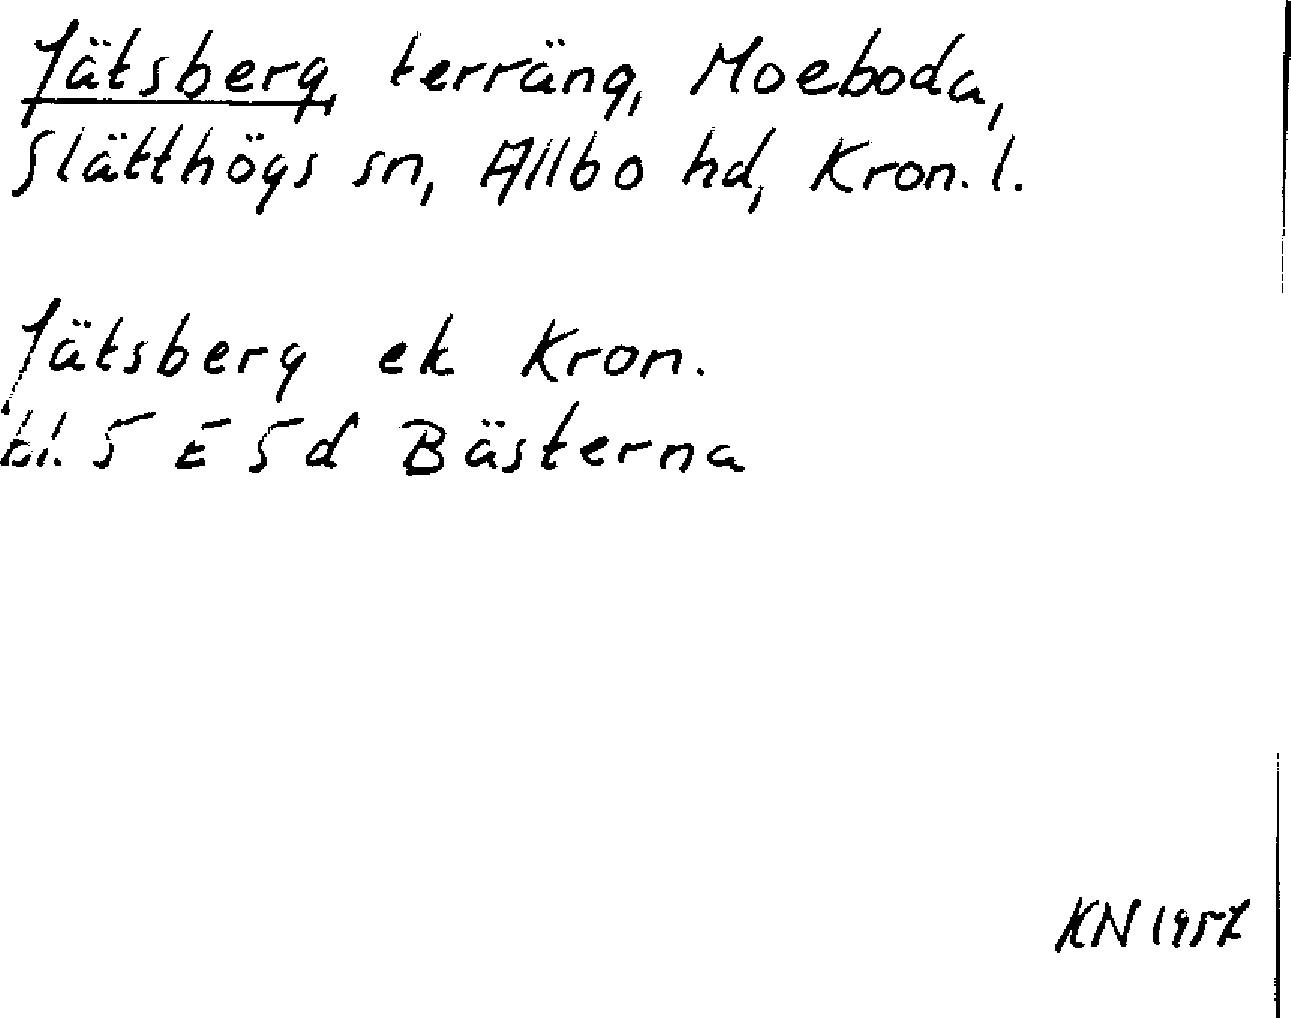 Jätsberg, terräng, Moeboda,
Slätthögs sn, Allbo hd, Kron. l.
Jätsberg ek Kron.
bl. 5 E 5 d Bästerna
KN 1957